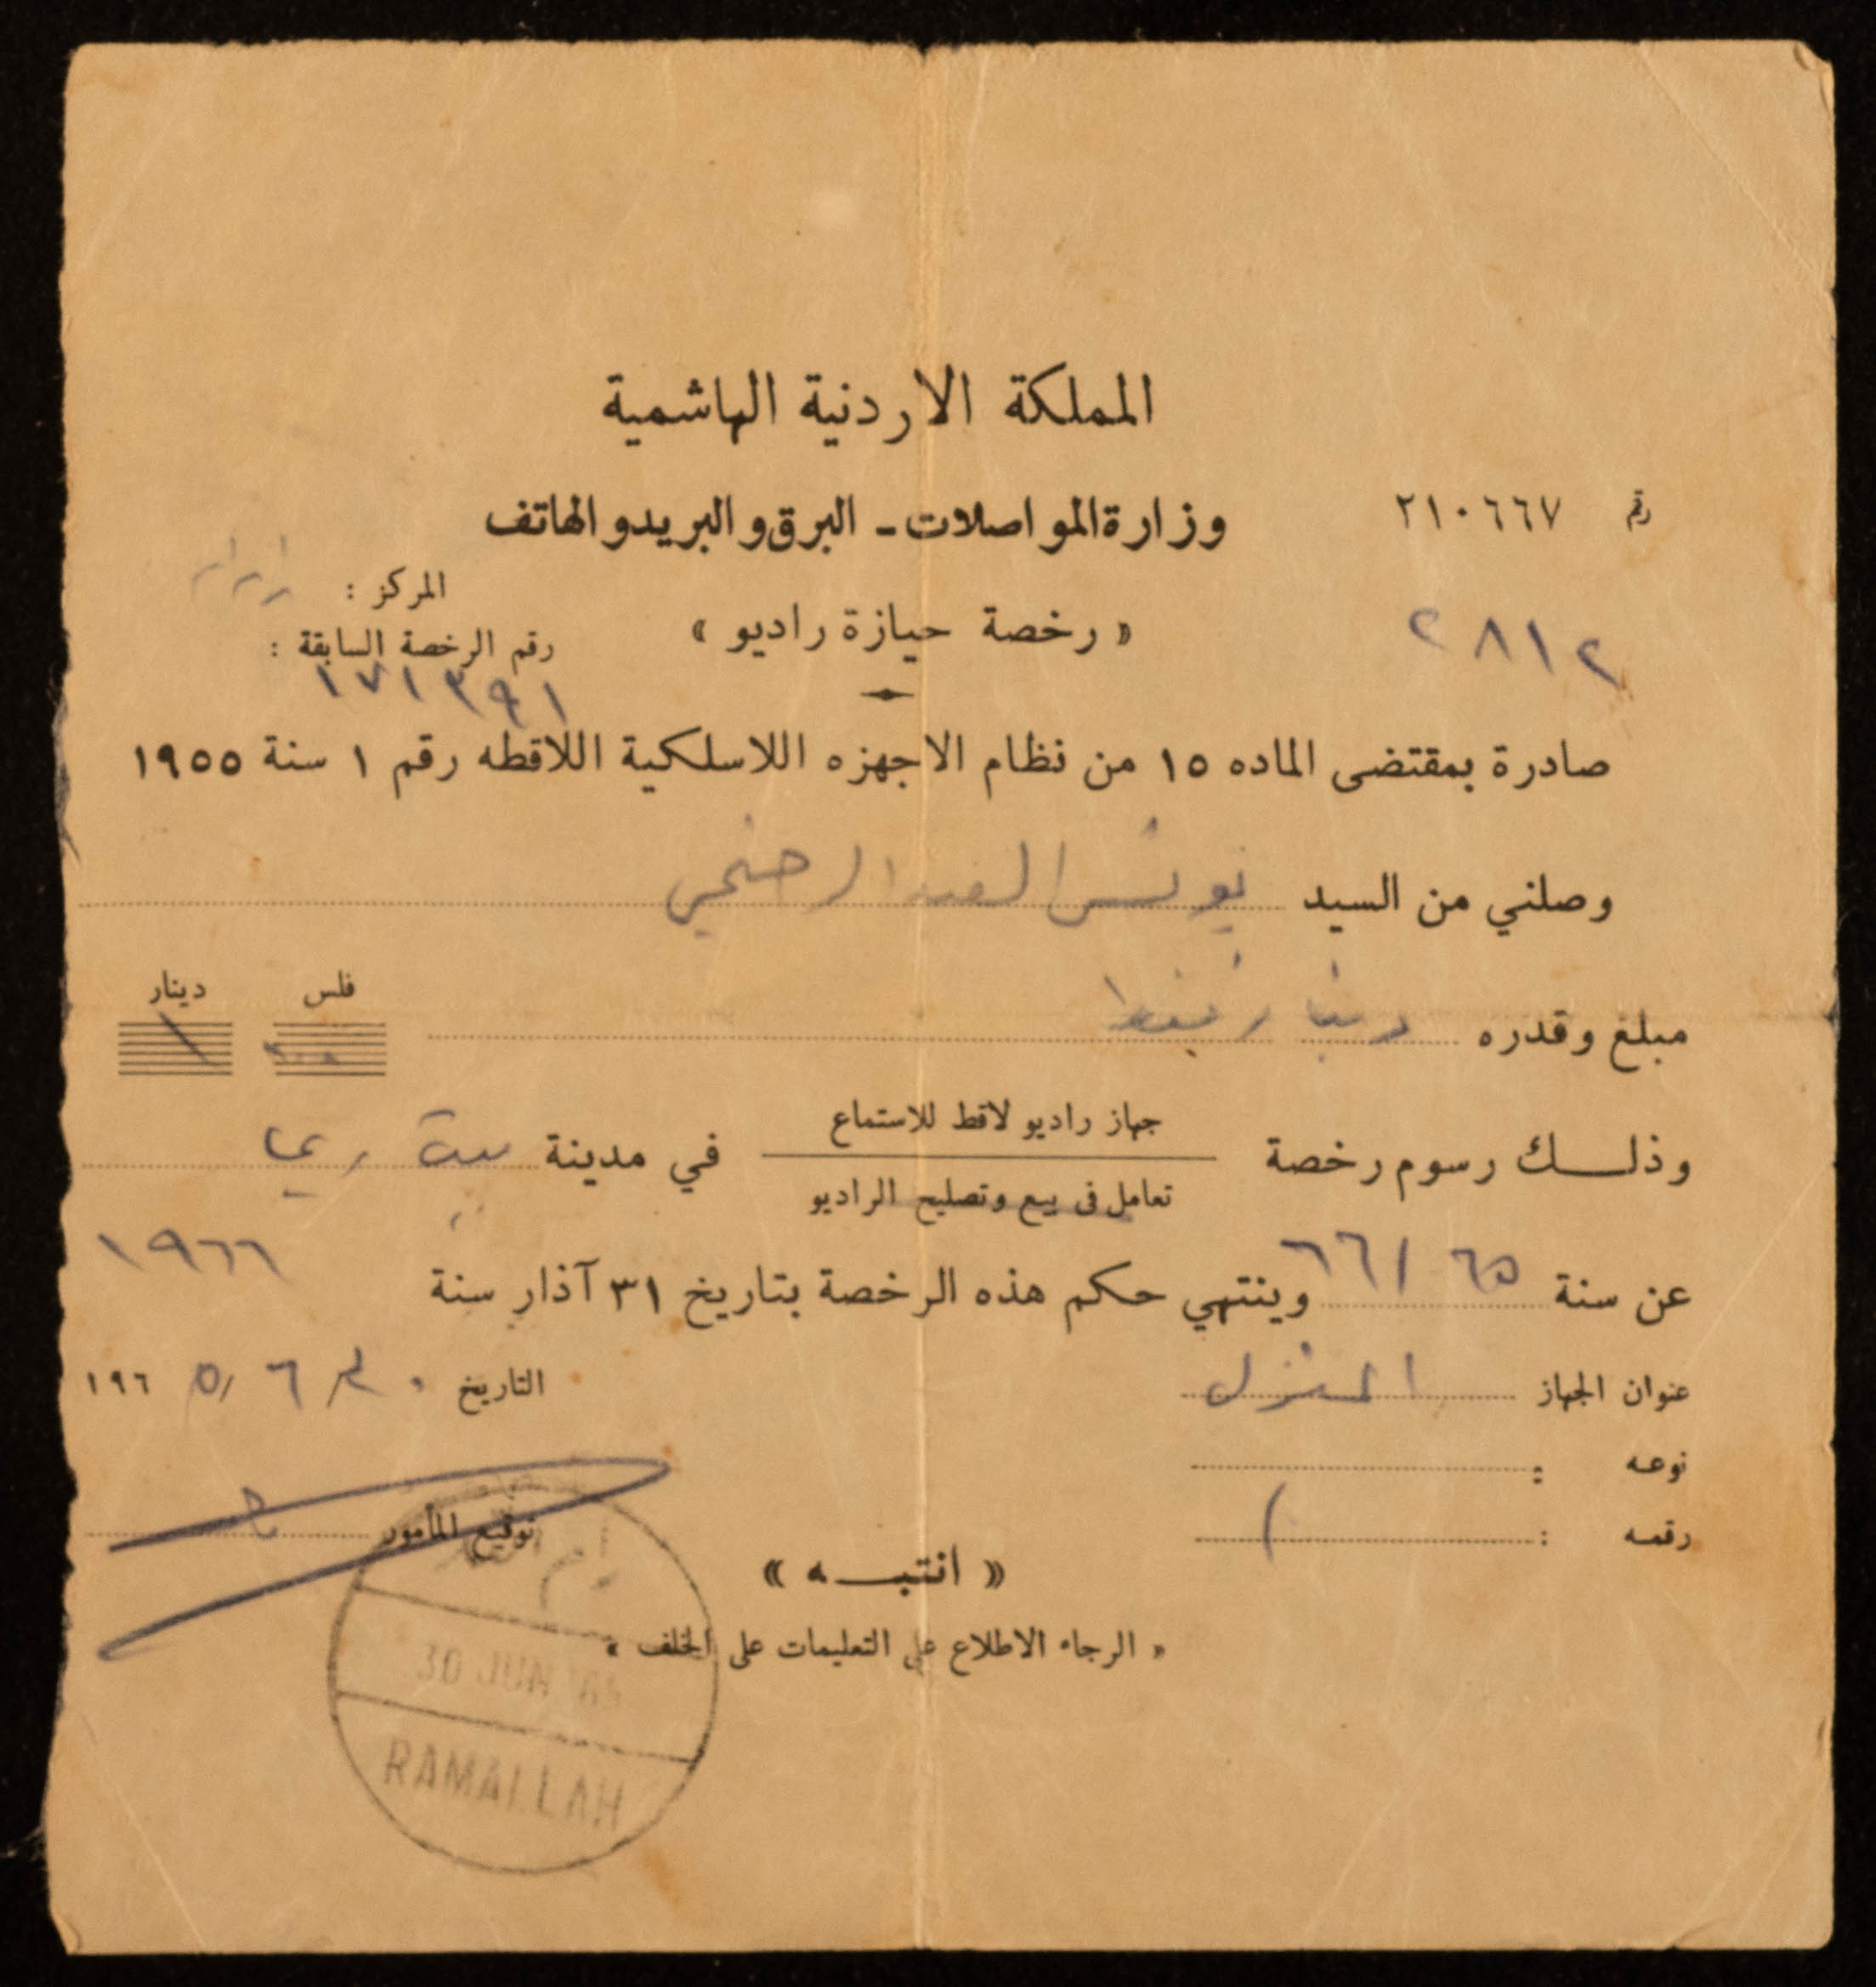 المملكة الاردنية الهاشمية
رقم ٢١٠٦٦٧
وزارة المواصلات - البرق والبريد والهاتف
المركز :
٢٨١٢
« رخصة حيازة راديو »
رقم الرخصة السابقة :
١٧١٣٩١
صادرة بمقتضى الماده ١٥ من نظام الاجهزه اللاسلكية اللاقطه رقم ١ سنة ١٩٥٥
وصلني من السيد يونس العبد الرحيمي
فلس دينار
مبلغ وقدره دينار فقط ١
جهاز راديو لاقط للاستماع
وذلك رسوم رخصة في مدينة بيت ريما
تعامل في بيع وتصليح الراديو
عن سنة ٦٥ / ٦٦ وينتهي حكم هذه الرخصة بتاريخ ٣١ آذار سنة ١٩٦٦
عنوان الجهاز المنزل
التاريخ ٣٠ / ٦ / ١٩٦٥
نوعه :
رقمه :
توقيع المأمور
« انتبه »
« الرجاء الاطلاع على التعليمات على الخلف »
رام الله
30 JUN 65
RAMALLAH